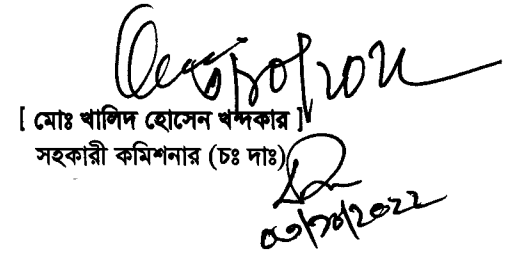 [ মোঃ খালিদ হোসেন খন্দকার ]
সহকারী কমিশনার (চঃ দাঃ)
০৩/১০/২০২২